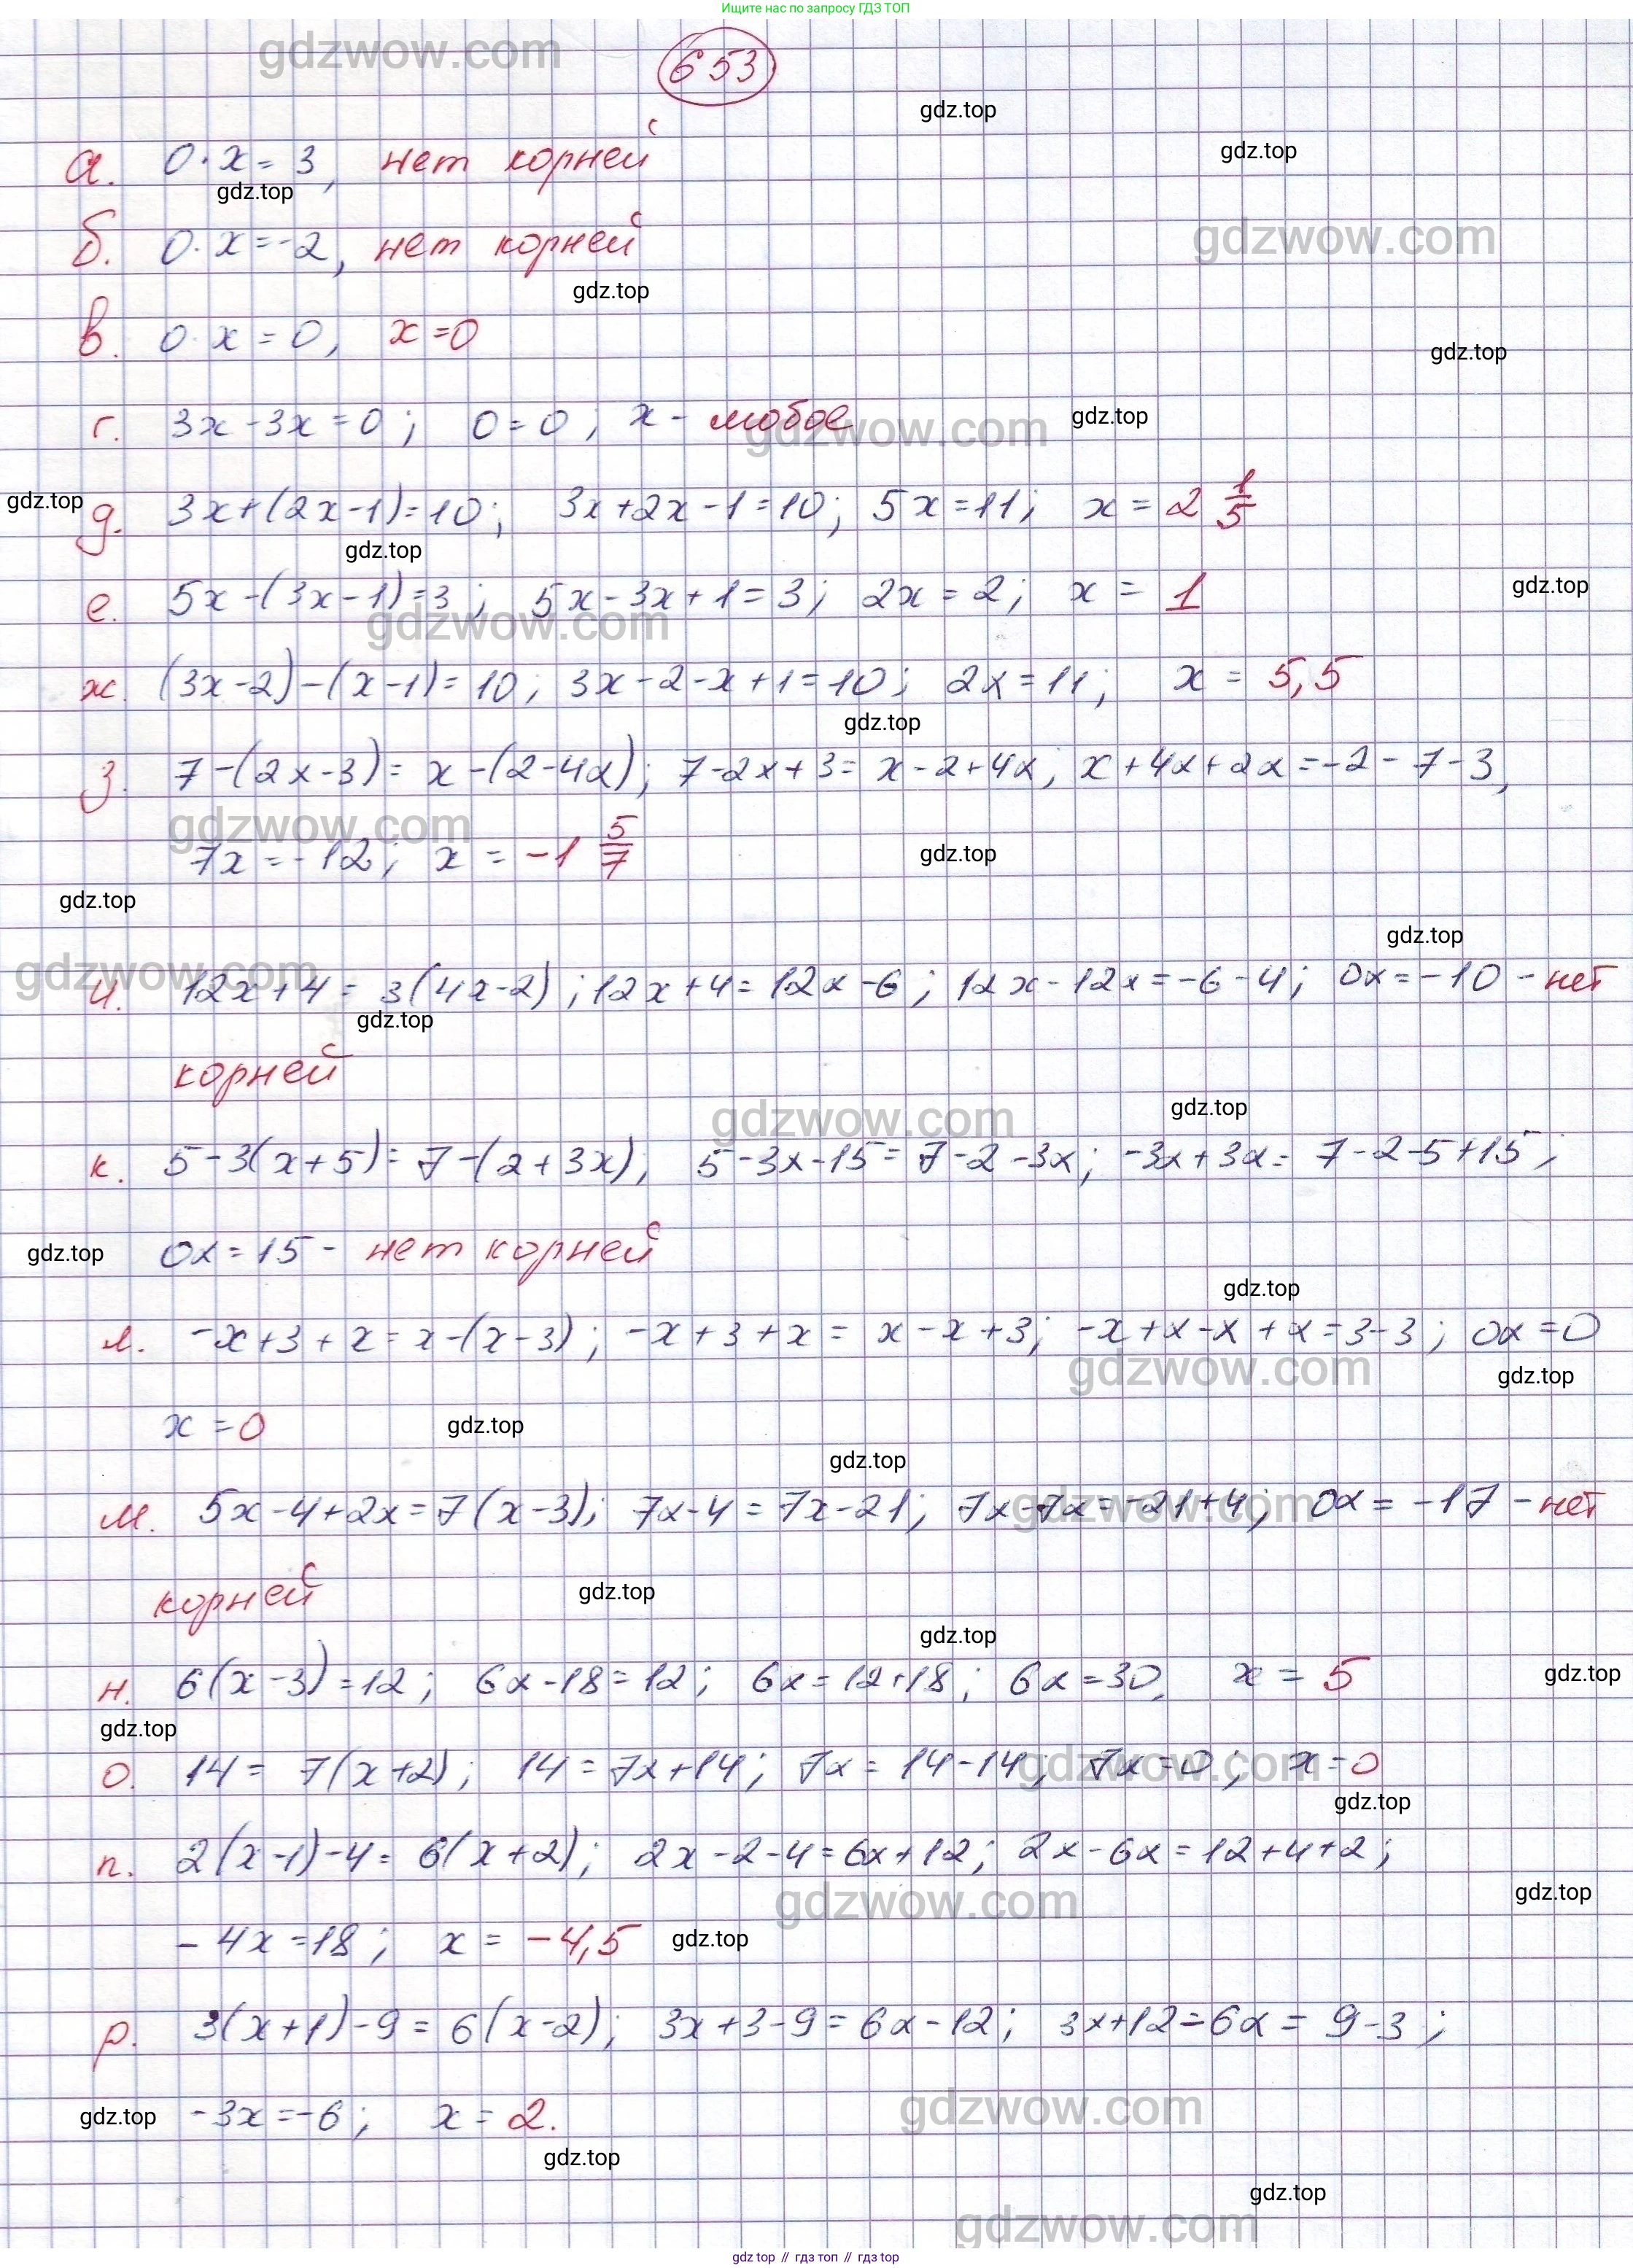 Ищите нас по запросу ГДЗ ТОП
653
а. 0·x = 3, нет корней
б. 0·x = -2, нет корней
в. 0·x = 0, x = 0
г. 3x - 3x = 0; 0 = 0; x - любое
д. 3x + (2x - 1) = 10; 3x + 2x - 1 = 10; 5x = 11; x = 2 1/5
е. 5x - (3x - 1) = 3; 5x - 3x + 1 = 3; 2x = 2; x = 1
ж. (3x - 2) - (x - 1) = 10; 3x - 2 - x + 1 = 10; 2x = 11; x = 5,5
з. 7 - (2x - 3) = x - (2 - 4x); 7 - 2x + 3 = x - 2 + 4x; x + 4x + 2x = -2 - 7 - 3,
7x = -12; x = -1 5/7
и. 12x + 4 = 3(4x - 2); 12x + 4 = 12x - 6; 12x - 12x = -6 - 4; 0x = -10 - нет
корней
к. 5 - 3(x + 5) = 7 - (2 + 3x); 5 - 3x - 15 = 7 - 2 - 3x; -3x + 3x = 7 - 2 - 5 + 15;
0x = 15 - нет корней
л. -x + 3 + x = x - (x - 3); -x + 3 + x = x - x + 3; -x + x - x + x = 3 - 3; 0x = 0
x = 0
м. 5x - 4 + 2x = 7(x - 3); 7x - 4 = 7x - 21; 7x - 7x = -21 + 4; 0x = -17 - нет
корней
н. 6(x - 3) = 12; 6x - 18 = 12; 6x = 12 + 18; 6x = 30, x = 5
о. 14 = 7(x + 2); 14 = 7x + 14; 7x = 14 - 14; 7x = 0; x = 0
п. 2(x - 1) - 4 = 6(x + 2); 2x - 2 - 4 = 6x + 12; 2x - 6x = 12 + 4 + 2;
-4x = 18; x = -4,5
р. 3(x + 1) - 9 = 6(x - 2); 3x + 3 - 9 = 6x - 12; 3x + 12 = 6x = 9 - 3;
-3x = -6; x = 2.
gdz top // гдз топ // gdz.top